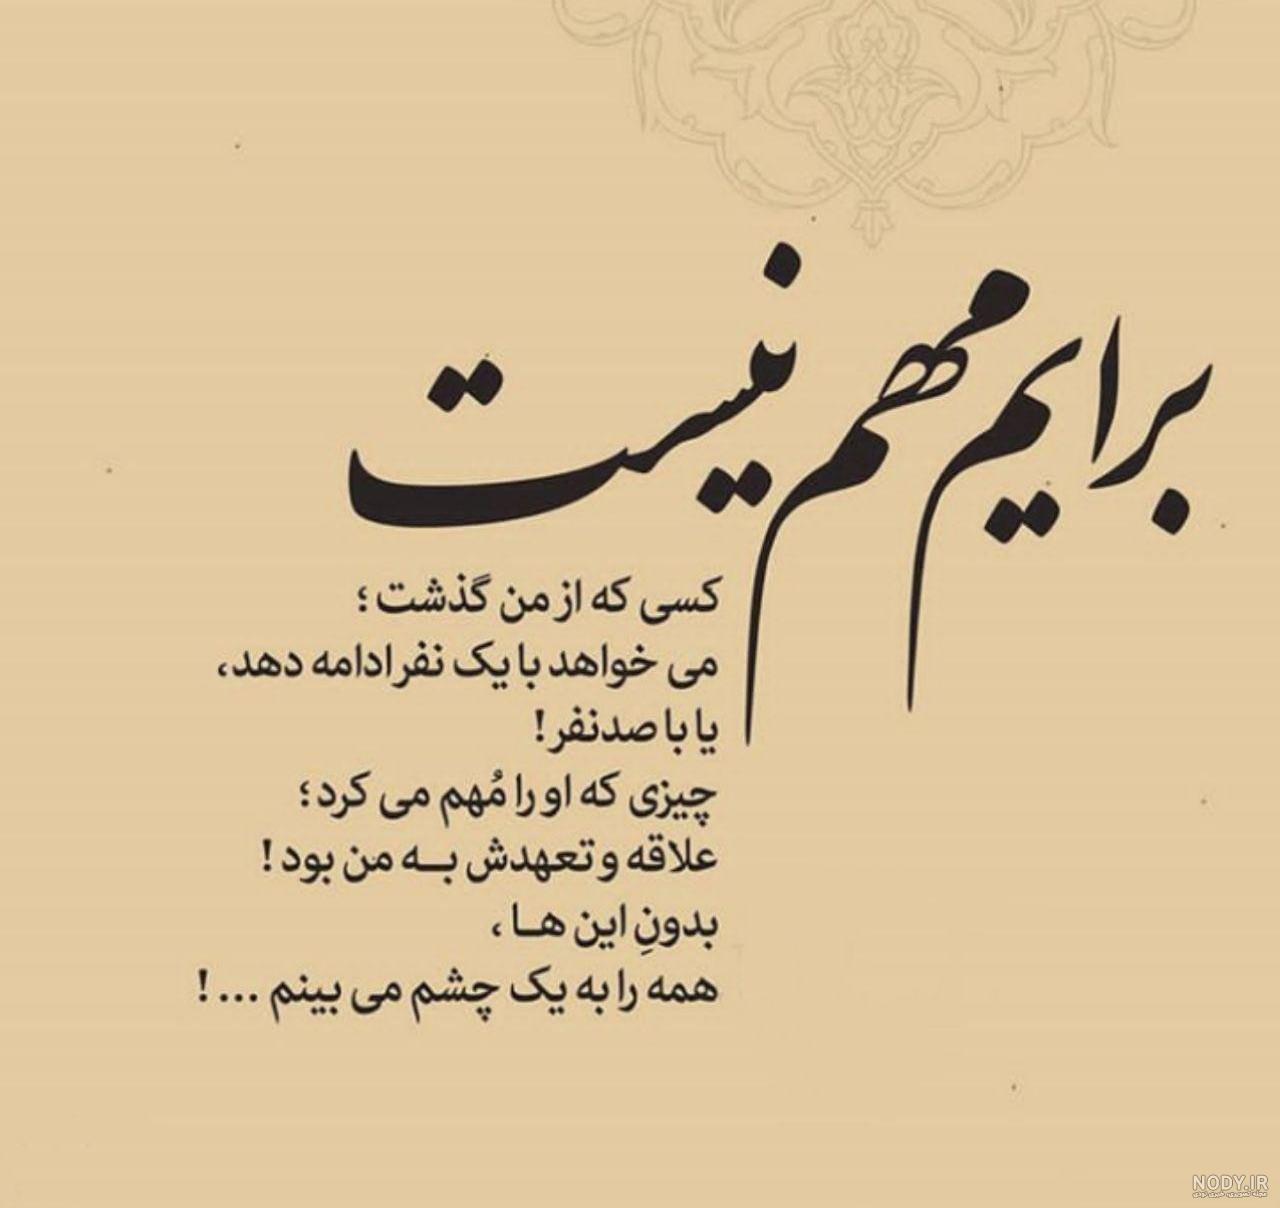 برایم مهم نیست
کسی که از من گذشت ؛
می خواهد با یک نفر ادامه دهد،
یا با صدنفر!
چیزی که او را مُهم می کرد ؛
علاقه و تعهدش بـه من بود !
بدونِ این هـا ،
همه را به یک چشم می بینم ... !
NODY.IR
مجله تصویری، خبری نودی